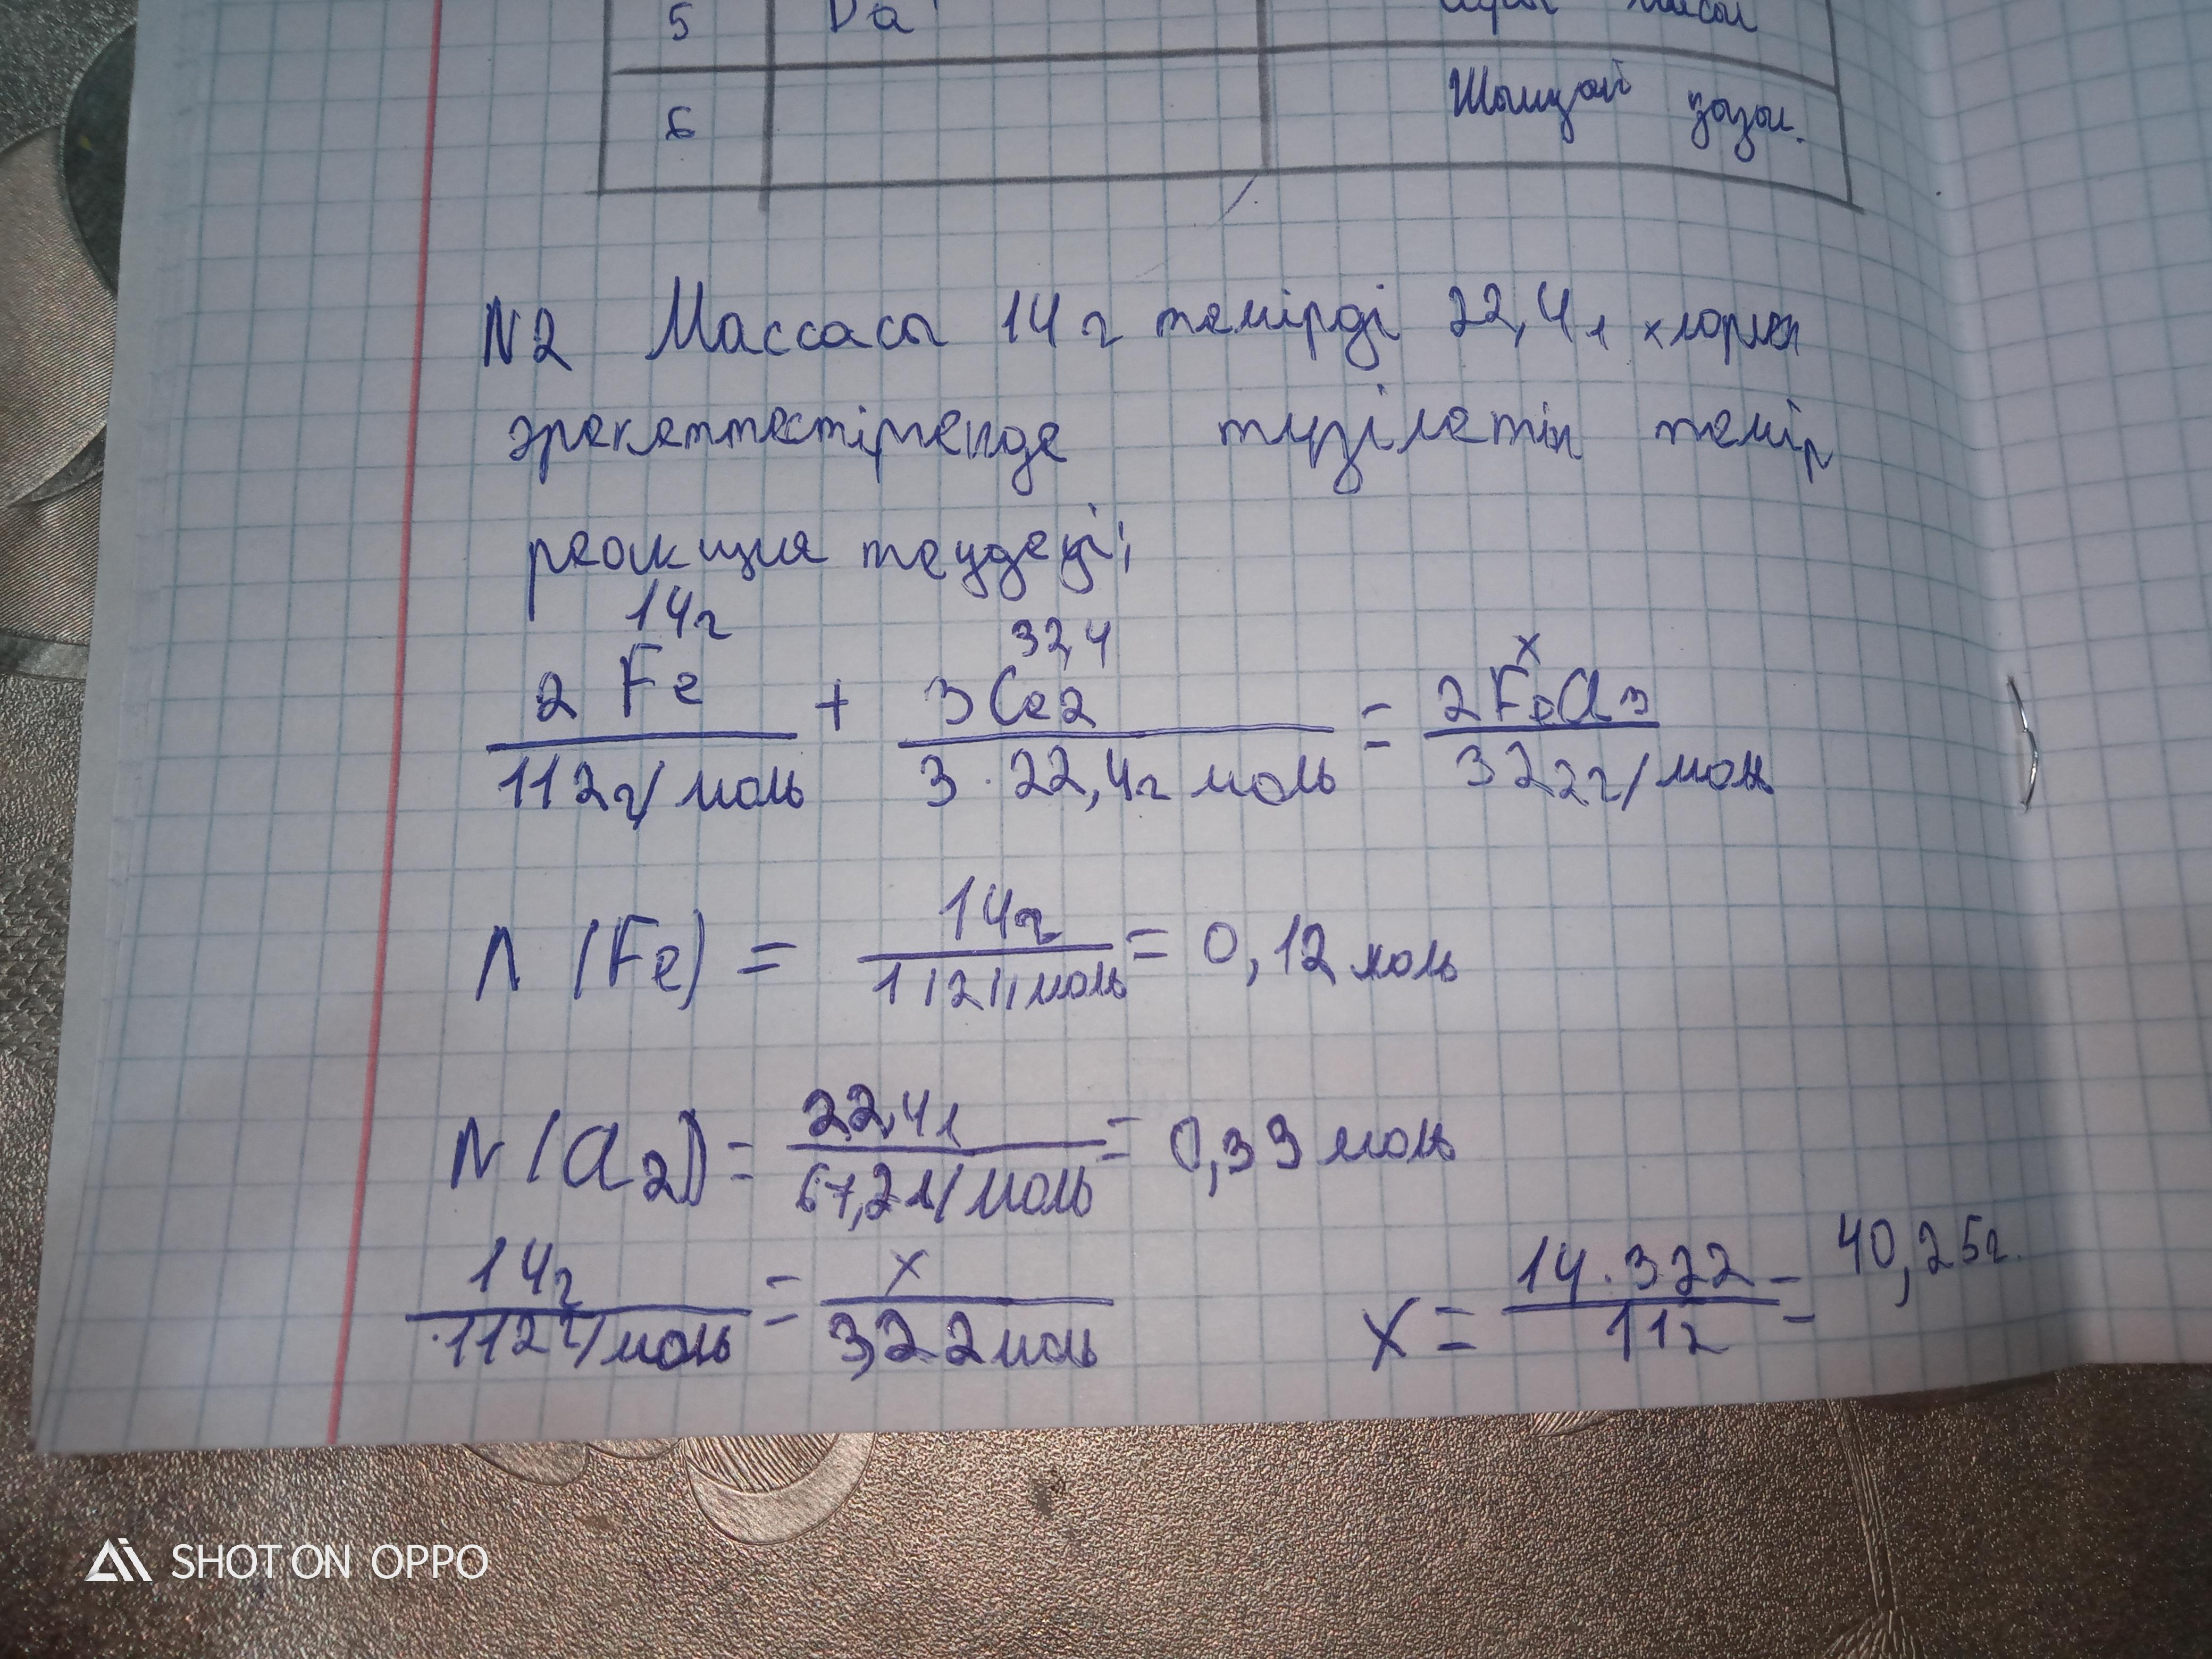 5 Ва
6 Шымқай қызыл.
N2 Массасы 14 г темірді 22,4 л хлормен
әрекеттестіргенде түзілетін темір
реакция теңдеуі;
14г 32,4 x
2 Fe + 3Cl2 = 2FeCl3
112г/моль 3 · 22,4г моль 322г/моль
N (Fe) = 14г / 112г/моль = 0,12 моль
N (Cl2) = 22,4л / 67,2л/моль = 0,33 моль
14г / 112г/моль = x / 322моль x = 14·322 / 112 = 40,25г.
SHOT ON OPPO